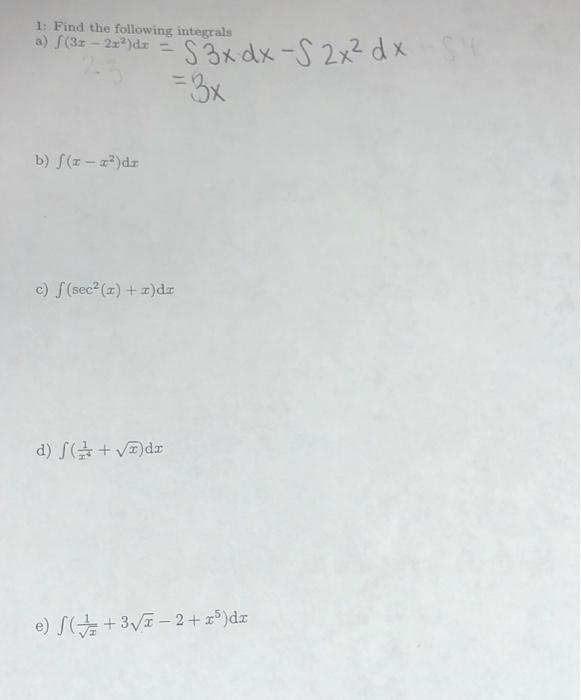 1: Find the following integrals
a) ∫(3x − 2x²)dx = ∫3x·dx − ∫2x² dx
=3x
b) ∫(x − x²)dx
c) ∫(sec²(x) + x)dx
d) ∫(1/x⁴ + √x)dx
e) ∫(1/√x + 3√x − 2 + x⁵)dx